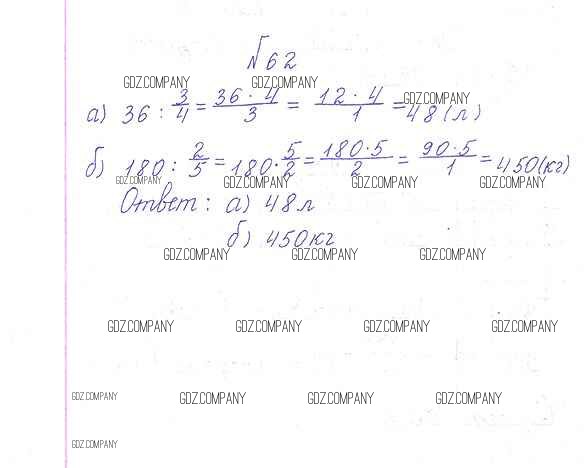 №62
GDZ.COMPANY GDZ.COMPANY GDZ.COMPANY
а) 36 : 3/4 = 36 · 4/3 = 12 · 4/1 = 48 (л)
б) 180 : 2/5 = 180 · 5/2 = 180·5/2 = 90·5/1 = 450 (кг)
GDZ.COMPANY GDZ.COMPANY GDZ.COMPANY GDZ.COMPANY
Ответ: а) 48 л
б) 450 кг
GDZ.COMPANY GDZ.COMPANY GDZ.COMPANY
GDZ.COMPANY GDZ.COMPANY GDZ.COMPANY GDZ.COMPANY
GDZ.COMPANY GDZ.COMPANY GDZ.COMPANY GDZ.COMPANY
GDZ.COMPANY